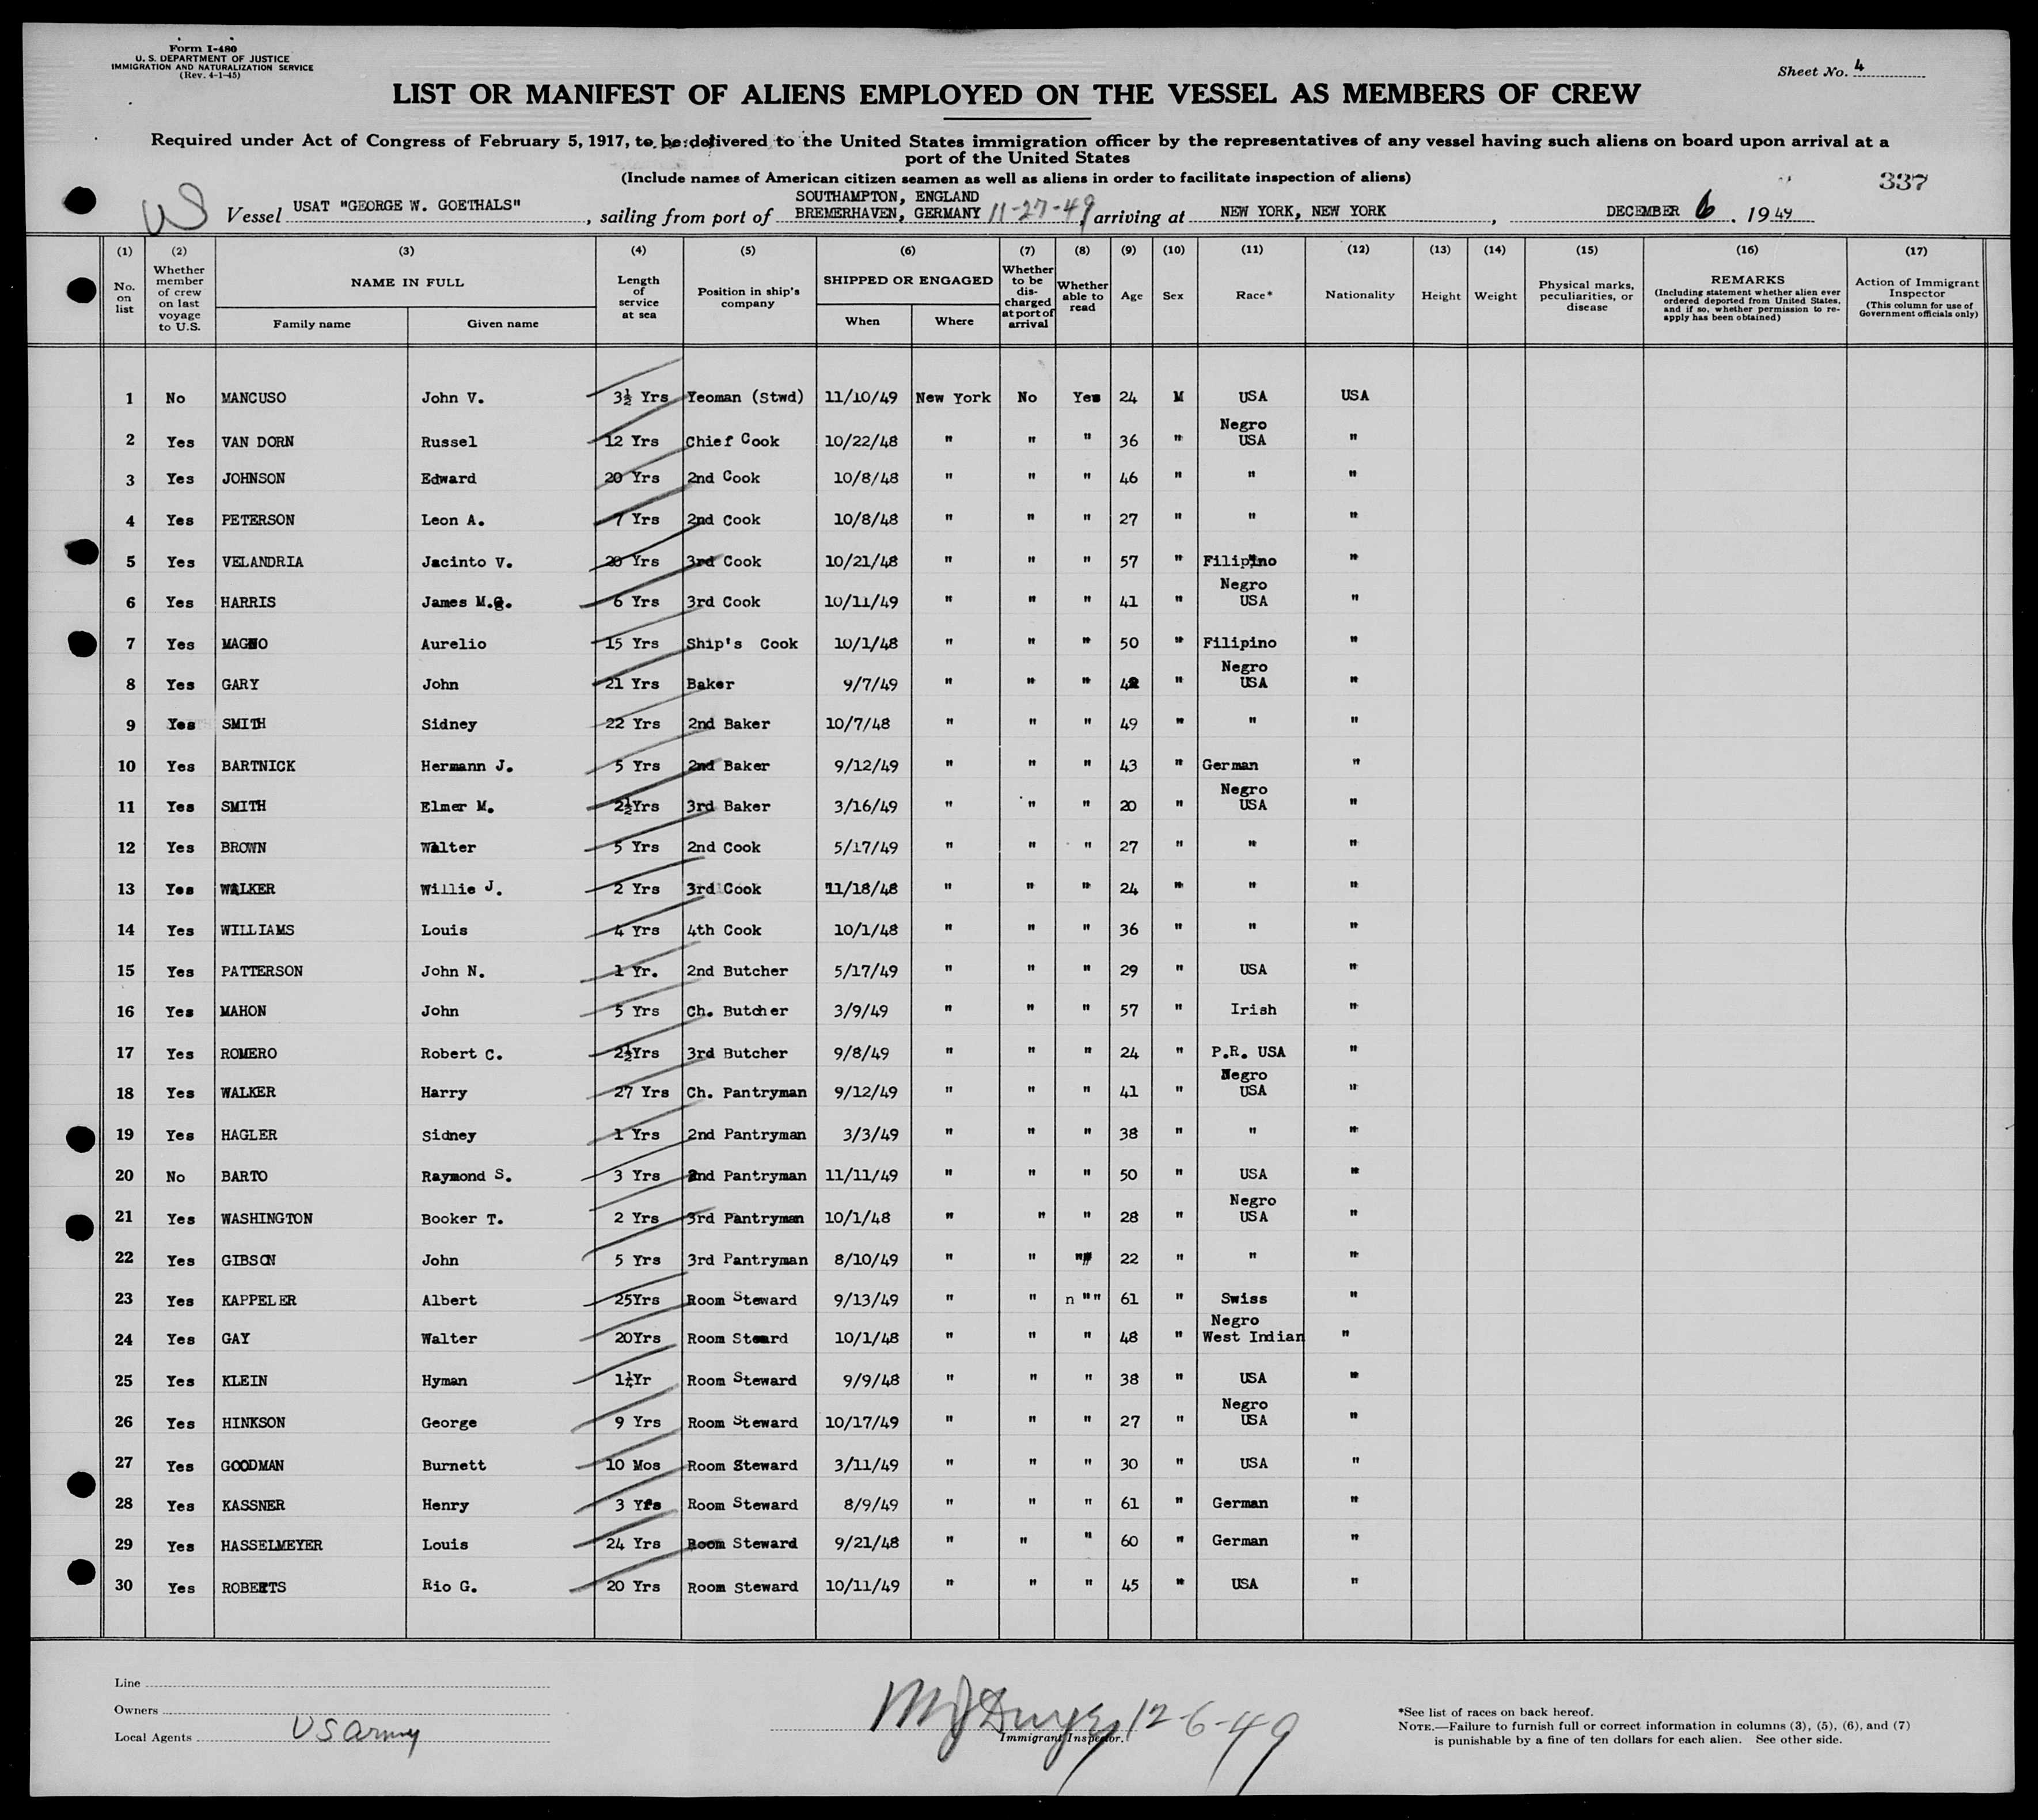 Form I-480
U. S. DEPARTMENT OF JUSTICE
IMMIGRATION AND NATURALIZATION SERVICE
(Rev. 4-1-45)
Sheet No. 4
LIST OR MANIFEST OF ALIENS EMPLOYED ON THE VESSEL AS MEMBERS OF CREW
Required under Act of Congress of February 5, 1917, to be delivered to the United States immigration officer by the representatives of any vessel having such aliens on board upon arrival at a
port of the United States
(Include names of American citizen seamen as well as aliens in order to facilitate inspection of aliens)
337
US Vessel USAT "GEORGE W. GOETHALS", sailing from port of SOUTHAMPTON, ENGLAND BREMERHAVEN, GERMANY 11-27-49, arriving at NEW YORK, NEW YORK, DECEMBER 6, 1949
(1) (2) (3) (4) (5) (6) (7) (8) (9) (10) (11) (12) (13) (14) (15) (16) (17)
No. on list
Whether member of crew on last voyage to U.S.
NAME IN FULL
Family name
Given name
Length of service at sea
Position in ship's company
SHIPPED OR ENGAGED
When
Where
Whether to be discharged at port of arrival
Whether able to read
Age
Sex
Race*
Nationality
Height
Weight
Physical marks, peculiarities, or disease
REMARKS
(Including statement whether alien ever ordered deported from United States, and if so, whether permission to reapply has been obtained)
Action of Immigrant Inspector
(This column for use of Government officials only)
1 No MANCUSO John V. 3½ Yrs Yeoman (Stwd) 11/10/49 New York No Yes 24 M USA USA
2 Yes VAN DORN Russel 12 Yrs Chief Cook 10/22/48 " " " 36 " Negro USA "
3 Yes JOHNSON Edward 20 Yrs 2nd Cook 10/8/48 " " " 46 " " "
4 Yes PETERSON Leon A. 7 Yrs 2nd Cook 10/8/48 " " " 27 " " "
5 Yes VELANDRIA Jacinto V. 20 Yrs 3rd Cook 10/21/48 " " " 57 " Filipino "
6 Yes HARRIS James M. 6 Yrs 3rd Cook 10/11/49 " " " 41 " Negro USA "
7 Yes MAGNO Aurelio 15 Yrs Ship's Cook 10/1/48 " " " 50 " Filipino "
8 Yes GARY John 21 Yrs Baker 9/7/49 " " " 42 " Negro USA "
9 Yes SMITH Sidney 22 Yrs 2nd Baker 10/7/48 " " " 49 " " "
10 Yes BARTNICK Hermann J. 5 Yrs 2nd Baker 9/12/49 " " " 43 " German "
11 Yes SMITH Elmer M. 2½Yrs 3rd Baker 3/16/49 " " " 20 " Negro USA "
12 Yes BROWN Walter 5 Yrs 2nd Cook 5/17/49 " " " 27 " " "
13 Yes WALKER Willie J. 2 Yrs 3rd Cook 11/18/48 " " " 24 " " "
14 Yes WILLIAMS Louis 4 Yrs 4th Cook 10/1/48 " " " 36 " " "
15 Yes PATTERSON John N. 1 Yr. 2nd Butcher 5/17/49 " " " 29 " USA "
16 Yes MAHON John 5 Yrs Ch. Butcher 3/9/49 " " " 57 " Irish "
17 Yes ROMERO Robert C. 2½Yrs 3rd Butcher 9/8/49 " " " 24 " P.R. USA "
18 Yes WALKER Harry 27 Yrs Ch. Pantryman 9/12/49 " " " 41 " Negro USA "
19 Yes HAGLER Sidney 1 Yrs 2nd Pantryman 3/3/49 " " " 38 " " "
20 No BARTO Raymond S. 3 Yrs 2nd Pantryman 11/11/49 " " " 50 " USA "
21 Yes WASHINGTON Booker T. 2 Yrs 3rd Pantryman 10/1/48 " " " 28 " Negro USA "
22 Yes GIBSON John 5 Yrs 3rd Pantryman 8/10/49 " " " 22 " " "
23 Yes KAPPELER Albert 25Yrs Room Steward 9/13/49 " " n "" 61 " Swiss "
24 Yes GAY Walter 20Yrs Room Steard 10/1/48 " " " 48 " Negro West Indian "
25 Yes KLEIN Hyman 1½Yr Room Steward 9/9/48 " " " 38 " USA "
26 Yes HINKSON George 9 Yrs Room Steward 10/17/49 " " " 27 " Negro USA "
27 Yes GOODMAN Burnett 10 Mos Room Steward 3/11/49 " " " 30 " USA "
28 Yes KASSNER Henry 3 Yrs Room Steward 8/9/49 " " " 61 " German "
29 Yes HASSELMEYER Louis 24 Yrs Room Steward 9/21/48 " " " 60 " German "
30 Yes ROBERTS Rio G. 20 Yrs Room Steward 10/11/49 " " " 45 " USA "
Line
Owners
Local Agents US Army
MJ Dwyer 12-6-49
Immigrant Inspector.
*See list of races on back hereof.
NOTE.—Failure to furnish full or correct information in columns (3), (5), (6), and (7)
is punishable by a fine of ten dollars for each alien. See other side.